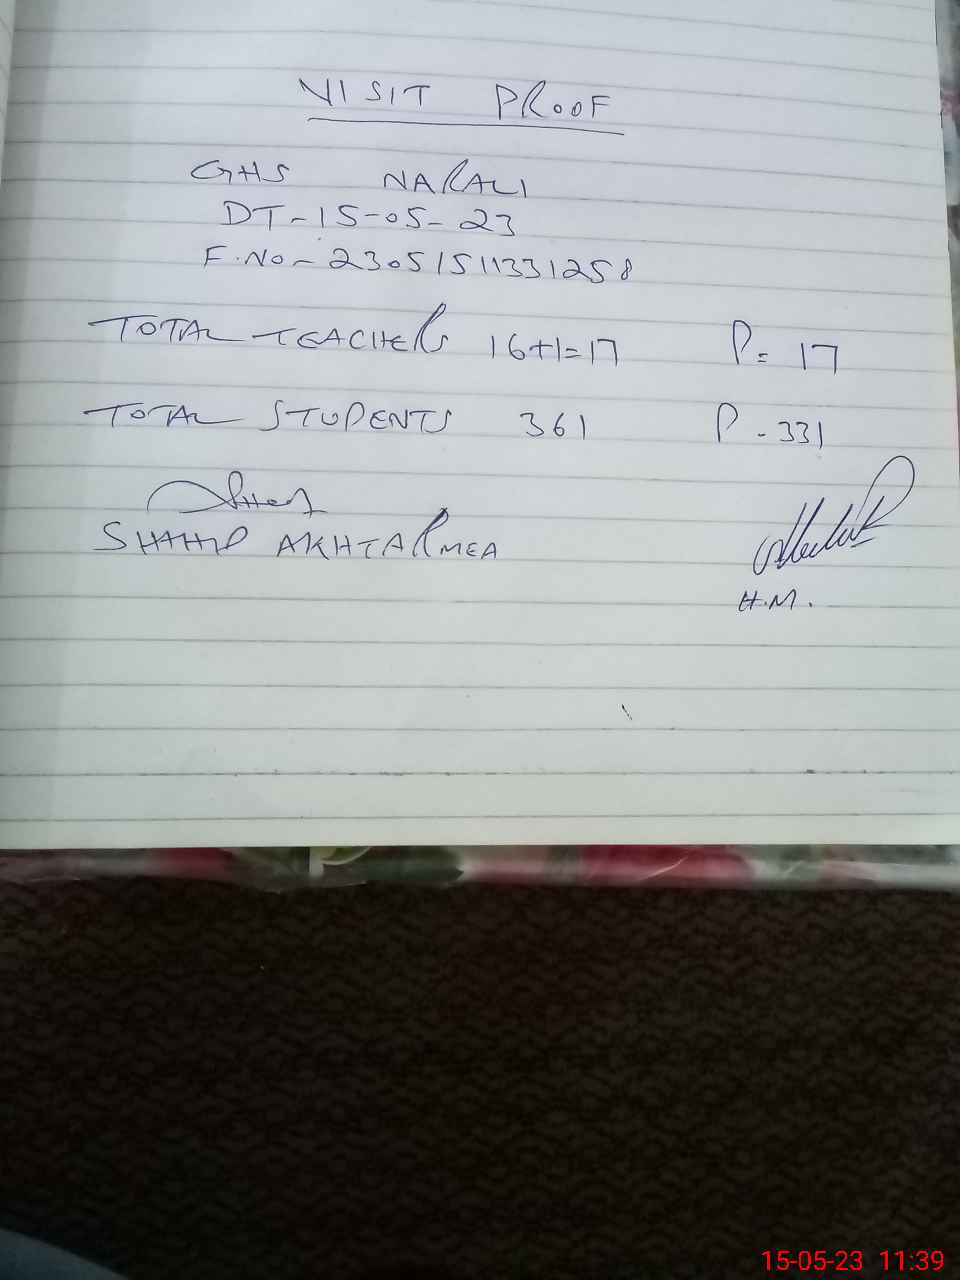 VISIT PROOF
GHS NARALI
DT-15-05-23
F.NO-23051511331258
TOTAL TEACHERS 16+1=17 P=17
TOTAL STUDENTS 361 P-331
SHAHID AKHTAR MEA
H.M.
15-05-23 11:39